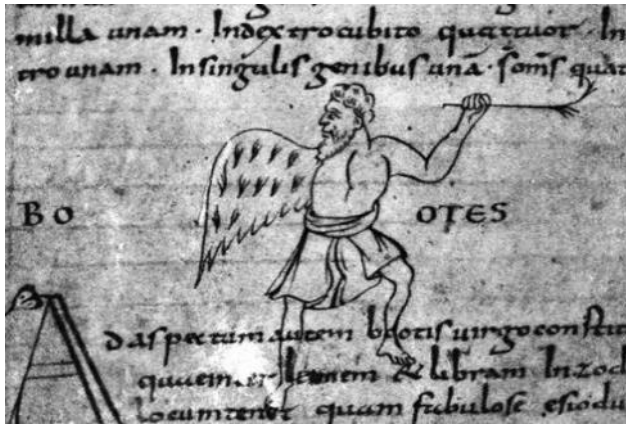 milla unam · Indextrocubito quattuor · In
tro unam · Insingulis genibus unā · quat
BO OTES
d aspectum autem bootis uirgo constit
leonem & libram Inzod
locum tenet quam fabulose esiodu